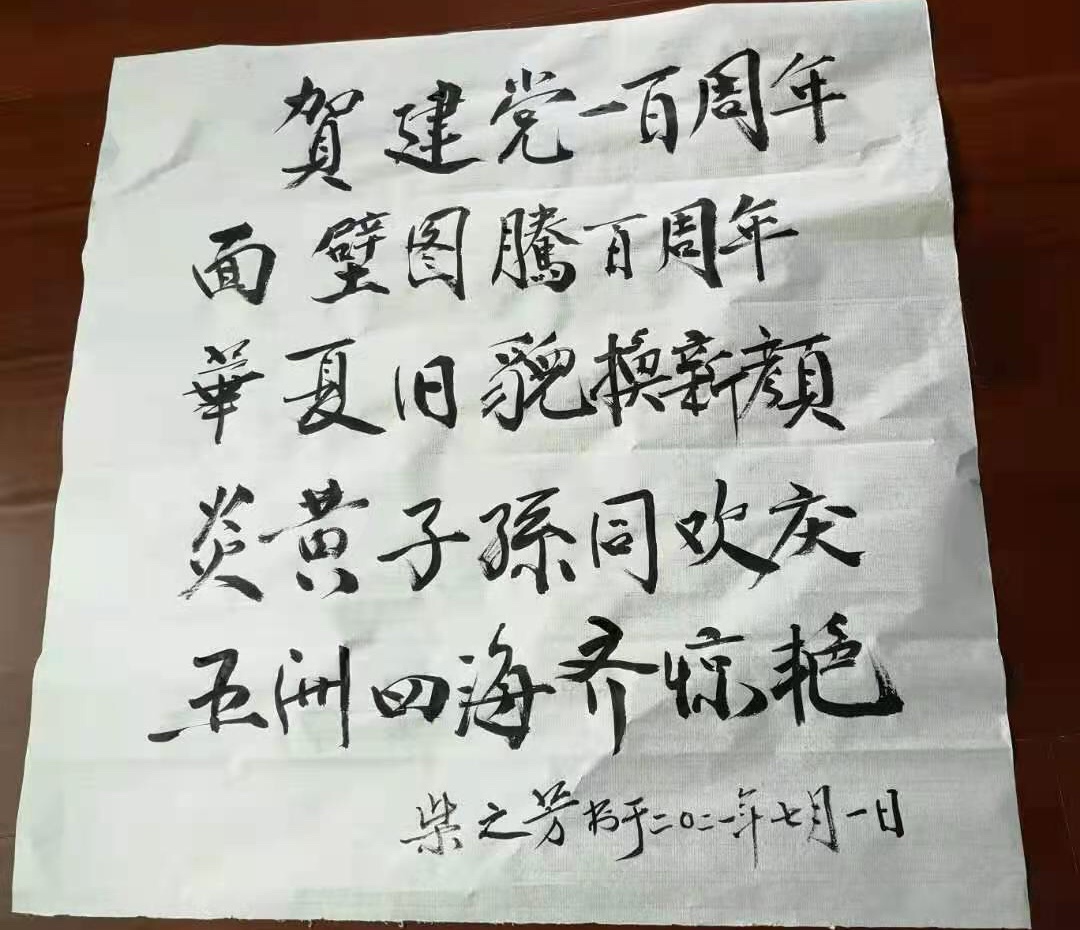 賀建党一百周年
面壁图騰百周年
華夏旧貌换新顔
炎黄子孫同欢庆
五洲四海齐惊艳
柴之芳书于二〇二一年七月一日